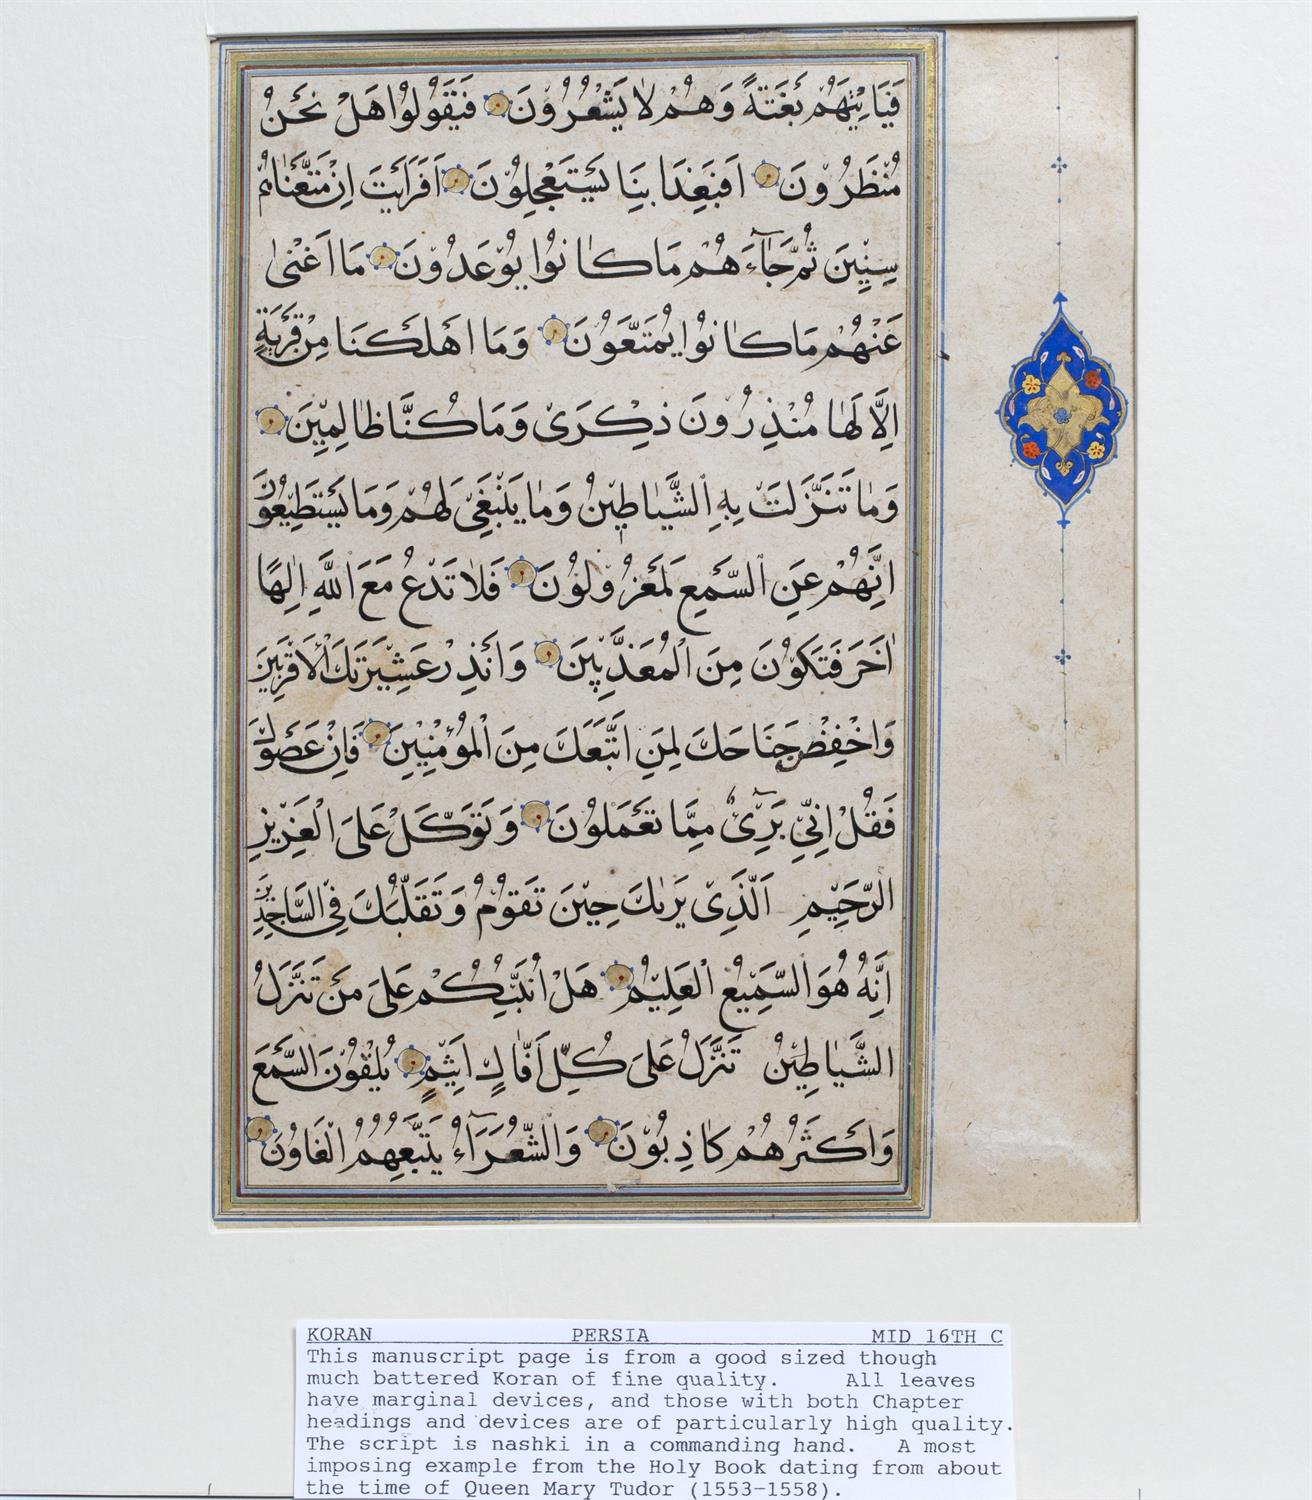 فَيَأْتِيَهُمْ بَغْتَةً وَهُمْ لَا يَشْعُرُونَ فَيَقُولُوا هَلْ نَحْنُ
مُنْظَرُونَ اَفَبِعَذَابِنَا يَسْتَعْجِلُونَ اَفَرَاَيْتَ اِنْ مَتَّعْنَاهُمْ
سِنِينَ ثُمَّ جَآءَهُمْ مَا كَانُوا يُوعَدُونَ مَا اَغْنٰى
عَنْهُمْ مَا كَانُوا يُمَتَّعُونَ وَمَا اَهْلَكْنَا مِنْ قَرْيَةٍ
اِلَّا لَهَا مُنْذِرُونَ ذِكْرٰى وَمَا كُنَّا ظَالِمِينَ
وَمَا تَنَزَّلَتْ بِهِ الشَّيَاطِينُ وَمَا يَنْبَغِي لَهُمْ وَمَا يَسْتَطِيعُونَ
اِنَّهُمْ عَنِ السَّمْعِ لَمَعْزُولُونَ فَلَا تَدْعُ مَعَ اللَّهِ اِلٰهًا
اٰخَرَ فَتَكُونَ مِنَ الْمُعَذَّبِينَ وَاَنْذِرْ عَشِيرَتَكَ الْاَقْرَبِينَ
وَاخْفِضْ جَنَاحَكَ لِمَنِ اتَّبَعَكَ مِنَ الْمُؤْمِنِينَ فَاِنْ عَصَوْكَ
فَقُلْ اِنِّي بَرِيٓءٌ مِمَّا تَعْمَلُونَ وَتَوَكَّلْ عَلَى الْعَزِيزِ
الرَّحِيمِ اَلَّذِي يَرٰيكَ حِينَ تَقُومُ وَتَقَلُّبَكَ فِي السَّاجِدِينَ
اِنَّهُ هُوَ السَّمِيعُ الْعَلِيمُ هَلْ اُنَبِّئُكُمْ عَلٰى مَنْ تَنَزَّلُ
الشَّيَاطِينُ تَنَزَّلُ عَلٰى كُلِّ اَفَّاكٍ اَثِيمٍ يُلْقُونَ السَّمْعَ
وَاَكْثَرُهُمْ كَاذِبُونَ وَالشُّعَرَآءُ يَتَّبِعُهُمُ الْغَاوُنَ
KORAN PERSIA MID 16TH C
This manuscript page is from a good sized though
much battered Koran of fine quality. All leaves
have marginal devices, and those with both Chapter
headings and devices are of particularly high quality.
The script is nashki in a commanding hand. A most
imposing example from the Holy Book dating from about
the time of Queen Mary Tudor (1553-1558).